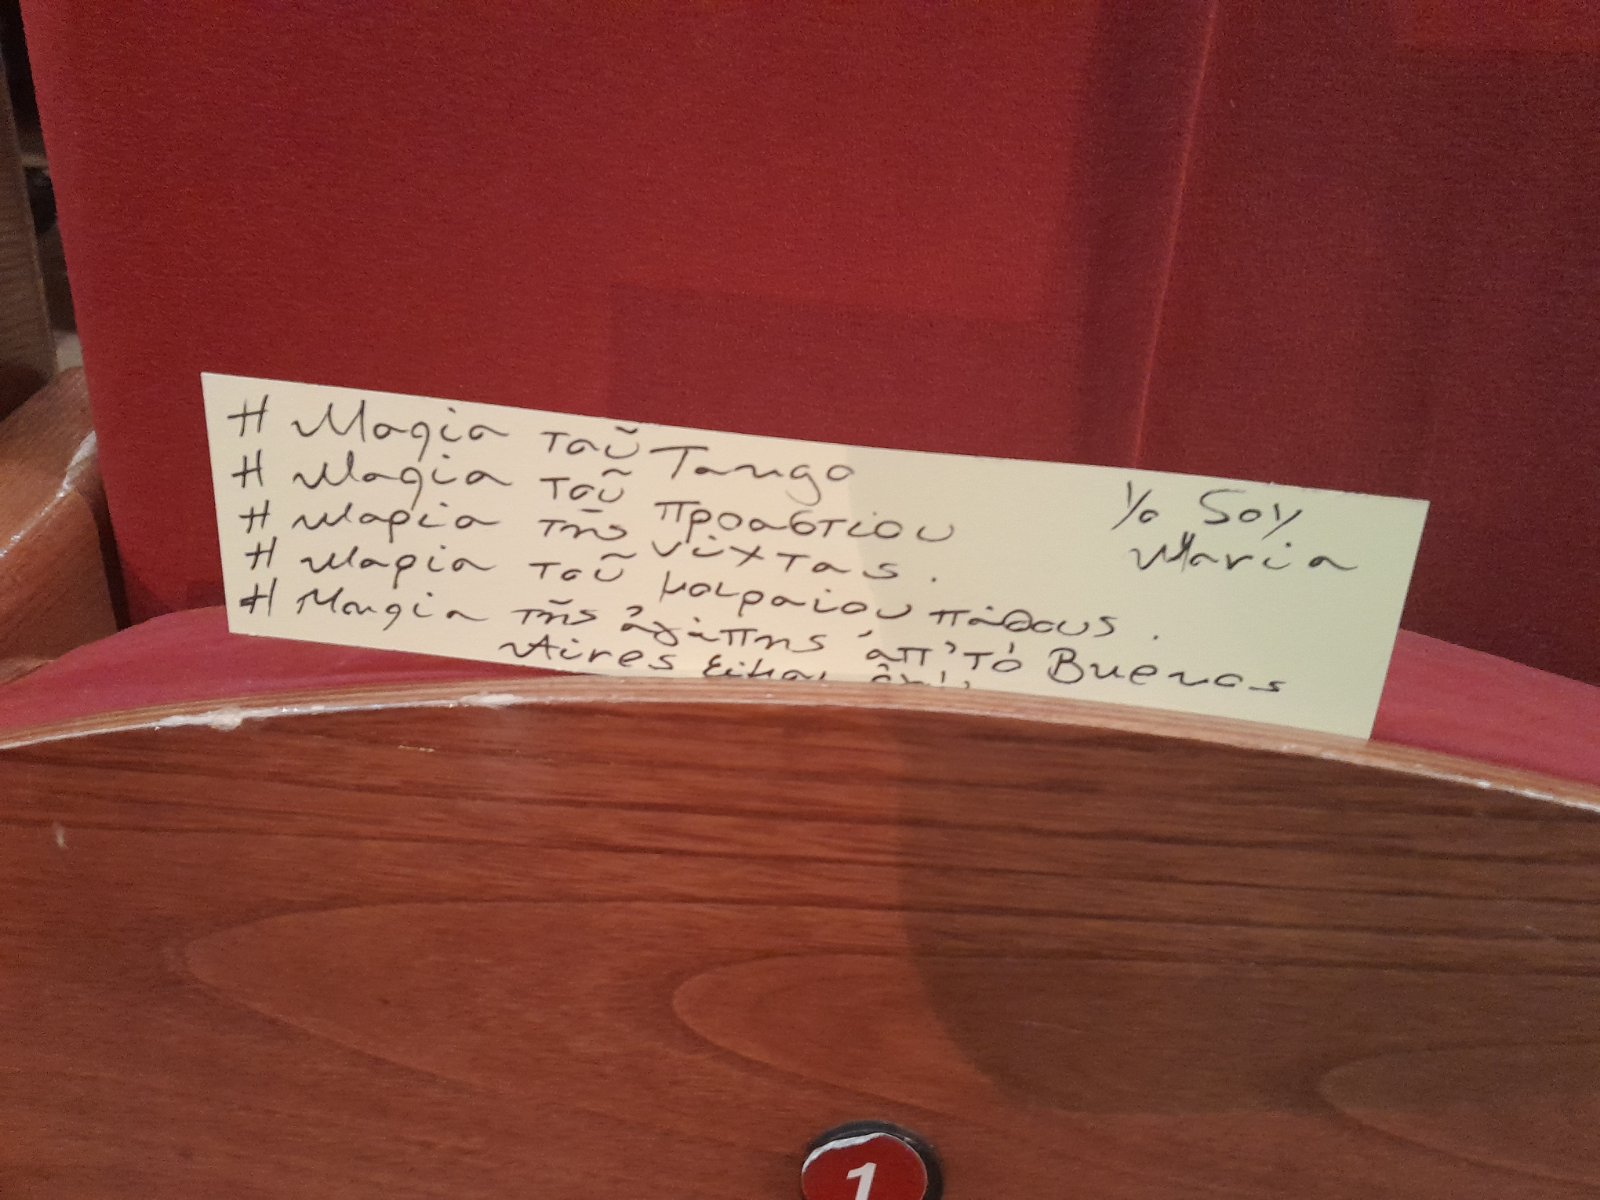 Η Μαρία τοῦ Tango
Η Μαρία τοῦ προαστίου
Η Μαρία τῆς νύχτας.
Η Μαρία τοῦ μοιραίου πάθους.
Η Μαρία τῆς ἀγάπης ἀπ' τὸ Buenos
Aires εἶμαι
Yo Soy
Maria
1